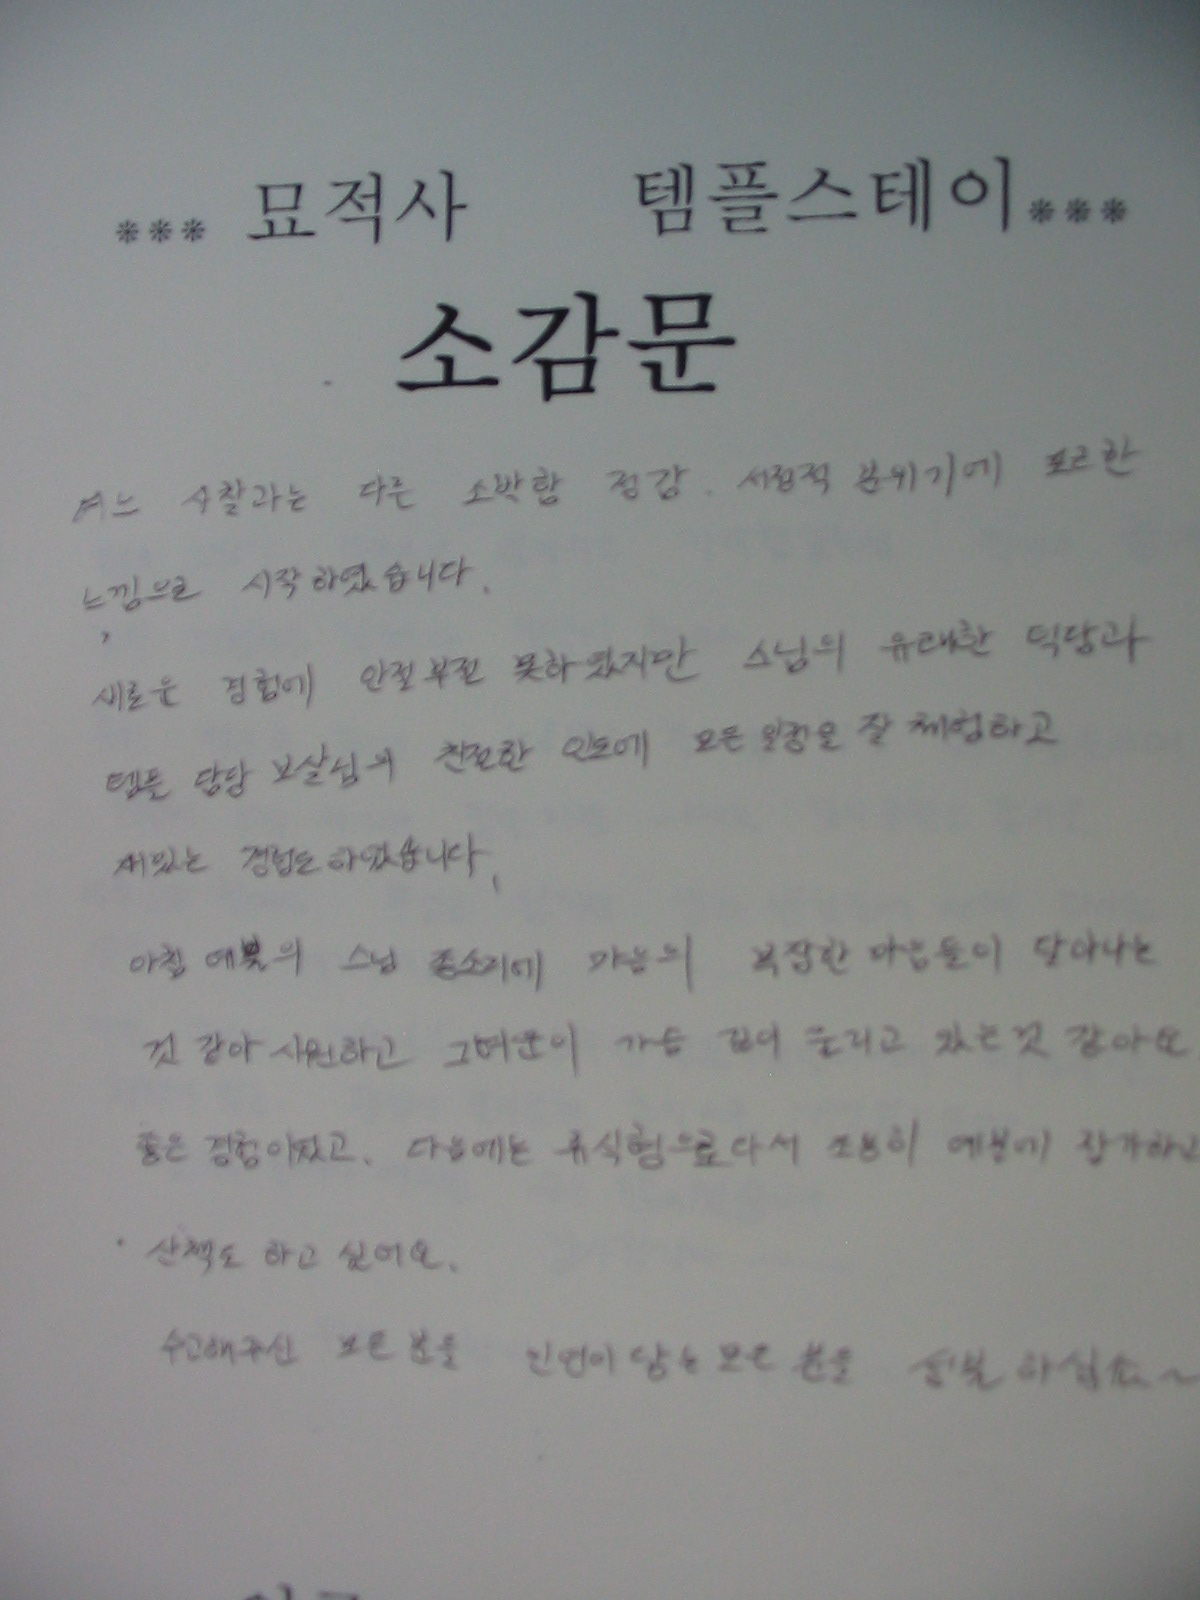 *** 묘적사 템플스테이***
소감문
여느 사찰과는 다른 소박함 정감. 서정적 분위기에 포근한
느낌으로 시작하였습니다.
새로운 경험에 안절부절 못하였지만 스님의 유쾌한 덕담과
템플 담당 보살님의 친절한 인도에 모든 일정을 잘 체험하고
재밌는 경험도 하였습니다.
아침 예불의 스님 종소리에 마음의 복잡한 마음들이 달아나는
것 같아 시원하고 그여운이 가슴 깊이 울리고 있는것 같아요
좋은 경험이었고. 다음에는 휴식형으로다시 조용히 예불에 참가하고
산책도 하고 싶어요.
수고해주신 모든분들 인연이 닿는 모든 분들 성불하십쇼~